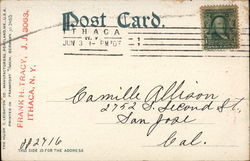 Post Card.
ITHACA
N.Y.
FRANK H. TRACY, J.A.3063.
ITHACA, N.Y.
Camille Allison
2752 S. Second St,
San Jose
Cal.
THIS SIDE IS FOR THE ADDRESS